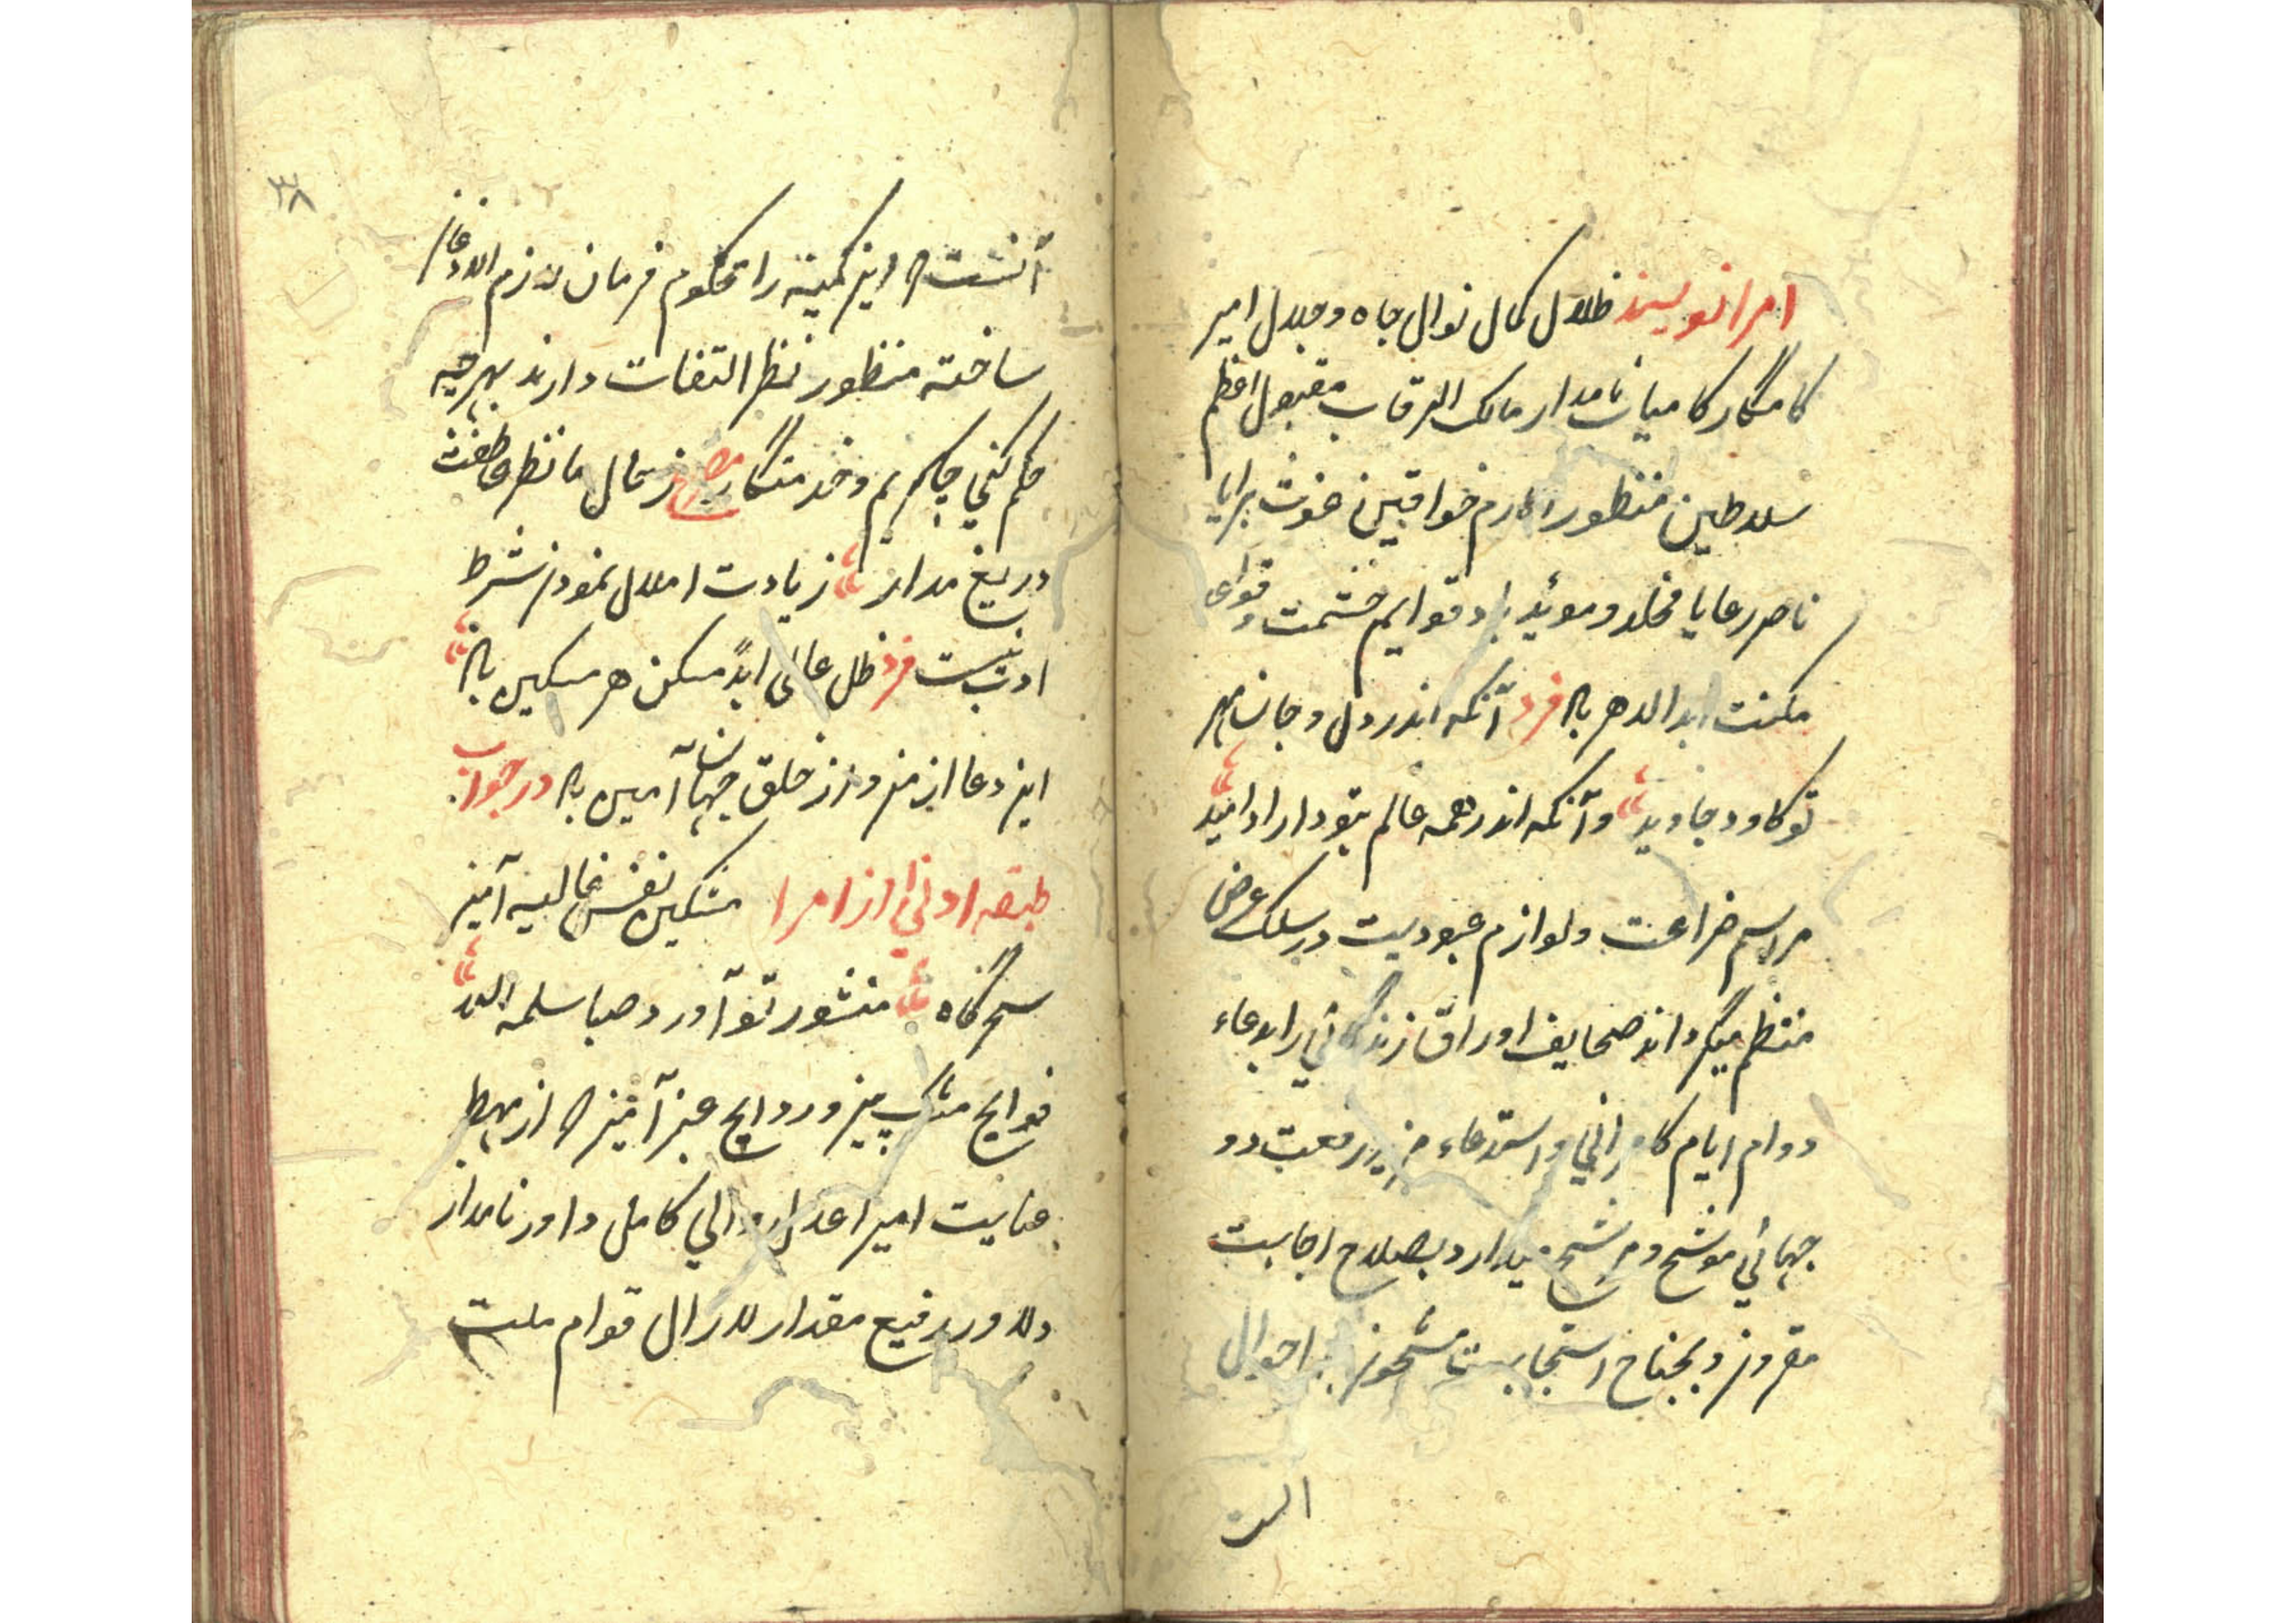 امرا نویسند ظلال کمال نوال جاه و جلال امیر
کامگار کامیاب نامدار مالک الرقاب مقبول اعظم
سلاطین منظور اکارم خواقین غوث برایا
ناصر رعایا مخلد و موئید باد قوایم حشمت و قوای
مکنت ابد الدهر باد فرد آنکه اندر دل و جان مهر
تو کاود جاوید وآنکه اندر همه عالم بتو دارد امید
مراسم ضراعت و لوازم عبودیت در سلک عرض
منتظم میگرداند صحایف اوراق زندگانی را بدعاء
دوام ایام کامرانی و استدعاء مزید رفعت دو
جهانی موشح و مرشح میدارد بصلاح اجابت
مقرون و بجناح استجابت مشحون احوال
الست
۳۸
آنست که این کمینه را محکوم فرمان لازم الاذعان
ساخته منظور نظر التفات دارند بهرچه
حکم کنی چاکریم و خدمتگار مصرع ز حال ما نظر عاطفت
دریغ مدار زیادت املال نمودن شرط
ادب نیست فرد ظل عالی ابداً مسکن هر مسکین باد
این دعا از من و از خلق جهان آمین باد در جواب
طبقه ادنی از امرا مشکین نفس غالیه آمیز
سحرگاه منشور تو آورد صبا سلمه الله
فوایح مشک بیز و روایح عنبر آمیز که از مهبط
عنایت امیر اعدل والی کامل داور نامدار
دلاور رفیع مقدار لازال قوام ملت